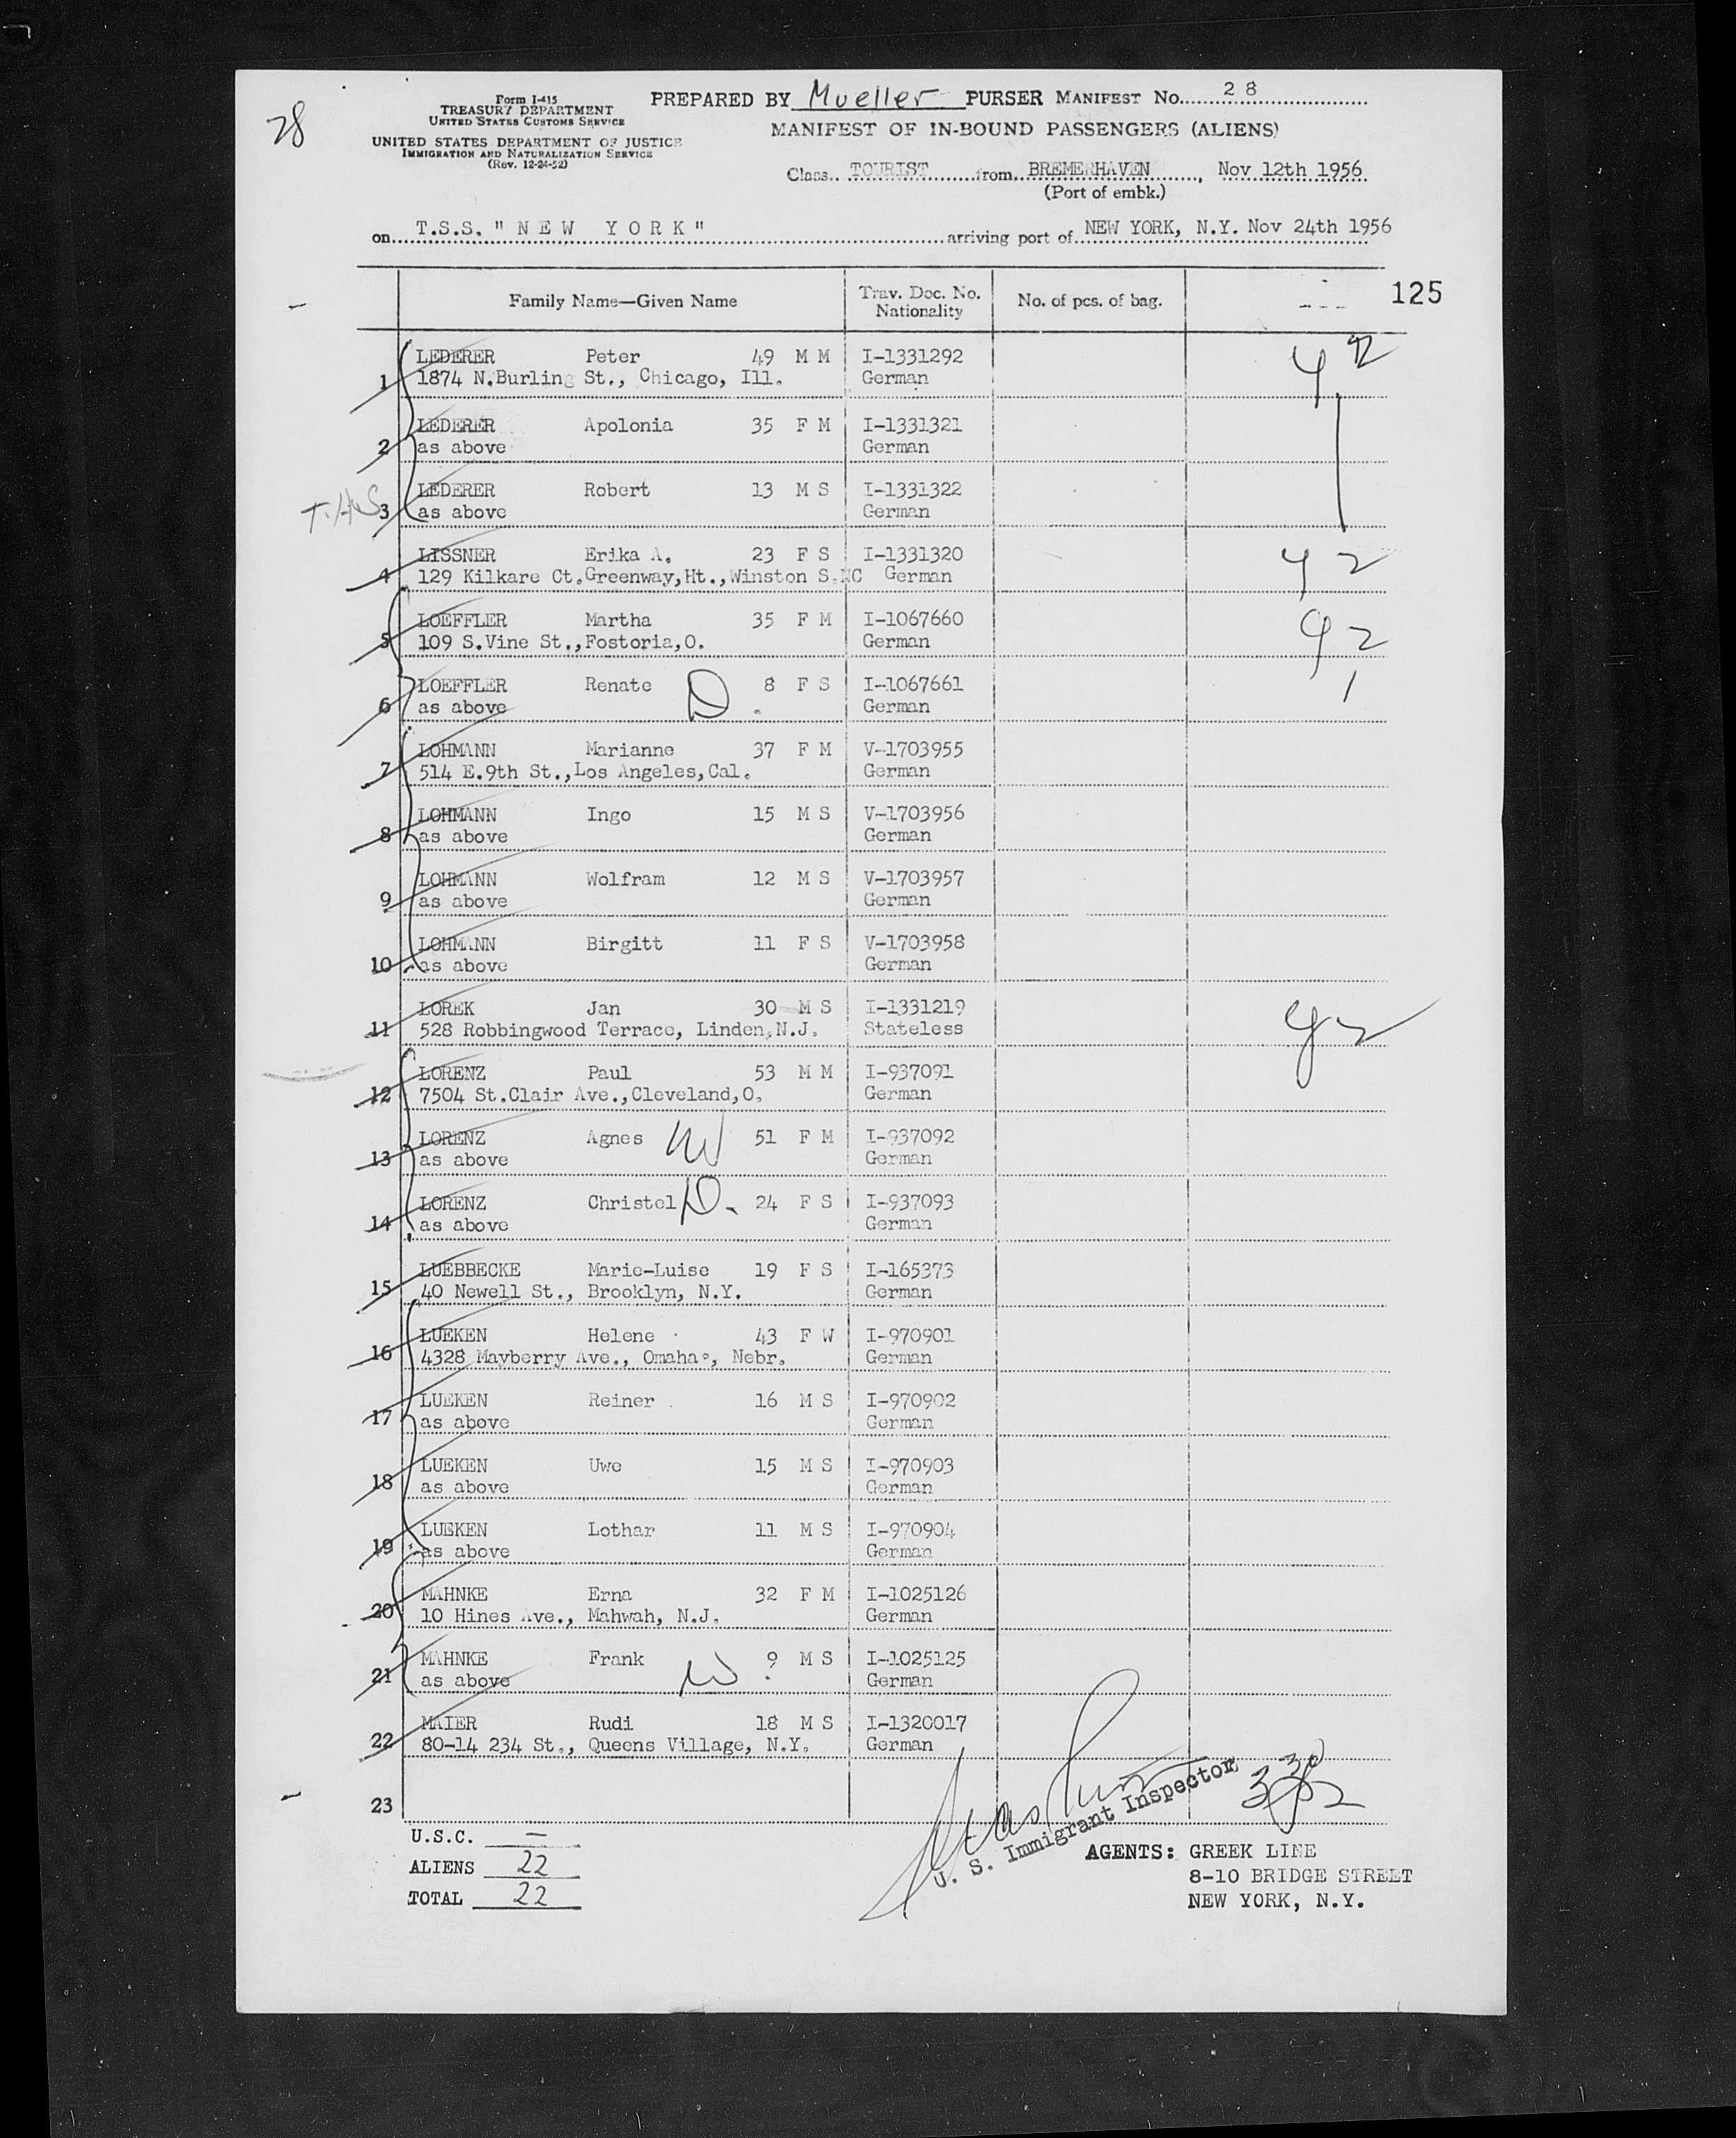 28
Form I-415
TREASURY DEPARTMENT
UNITED STATES CUSTOMS SERVICE
UNITED STATES DEPARTMENT OF JUSTICE
IMMIGRATION AND NATURALIZATION SERVICE
(Rev. 12-24-52)
PREPARED BY Mueller PURSER MANIFEST No. 28
MANIFEST OF IN-BOUND PASSENGERS (ALIENS)
Class TOURIST from BREMERHAVEN, Nov 12th 1956
(Port of embk.)
on T.S.S. "NEW YORK" arriving port of NEW YORK, N.Y. Nov 24th 1956
Family Name—Given Name Trav. Doc. No. Nationality No. of pcs. of bag. 125
1 LEDERER Peter 49 M M I-1331292 42
1874 N.Burling St., Chicago, Ill. German
2 LEDERER Apolonia 35 F M I-1331321
as above German
3 LEDERER Robert 13 M S I-1331322
as above German
4 LISSNER Erika A. 23 F S I-1331320 42
129 Kilkare Ct.Greenway,Ht.,Winston S.NC German
5 LOEFFLER Martha 35 F M I-1067660 42
109 S.Vine St.,Fostoria,O. German
6 LOEFFLER Renate D 8 F S I-1067661
as above German
7 LOHMANN Marianne 37 F M V-1703955
514 E.9th St.,Los Angeles,Cal. German
8 LOHMANN Ingo 15 M S V-1703956
as above German
9 LOHMANN Wolfram 12 M S V-1703957
as above German
10 LOHMANN Birgitt 11 F S V-1703958
as above German
11 LOREK Jan 30 M S I-1331219 42
528 Robbingwood Terrace, Linden,N.J. Stateless
12 LORENZ Paul 53 M M I-937091
7504 St.Clair Ave.,Cleveland,O. German
13 LORENZ Agnes W 51 F M I-937092
as above German
14 LORENZ Christel D. 24 F S I-937093
as above German
15 LUEBBECKE Marie-Luise 19 F S I-165373
40 Newell St., Brooklyn, N.Y. German
16 LUEKEN Helene 43 F W I-970901
4328 Mayberry Ave., Omaha, Nebr. German
17 LUEKEN Reiner 16 M S I-970902
as above German
18 LUEKEN Uwe 15 M S I-970903
as above German
19 LUEKEN Lothar 11 M S I-970904
as above German
20 MAHNKE Erna 32 F M I-1025126
10 Hines Ave., Mahwah, N.J. German
21 MAHNKE Frank W 9 M S I-1025125
as above German
22 MAIER Rudi 18 M S I-1320017
80-14 234 St., Queens Village, N.Y. German
23
U. S. Immigrant Inspector
U.S.C. —
ALIENS 22
TOTAL 22
AGENTS: GREEK LINE
8-10 BRIDGE STREET
NEW YORK, N.Y.